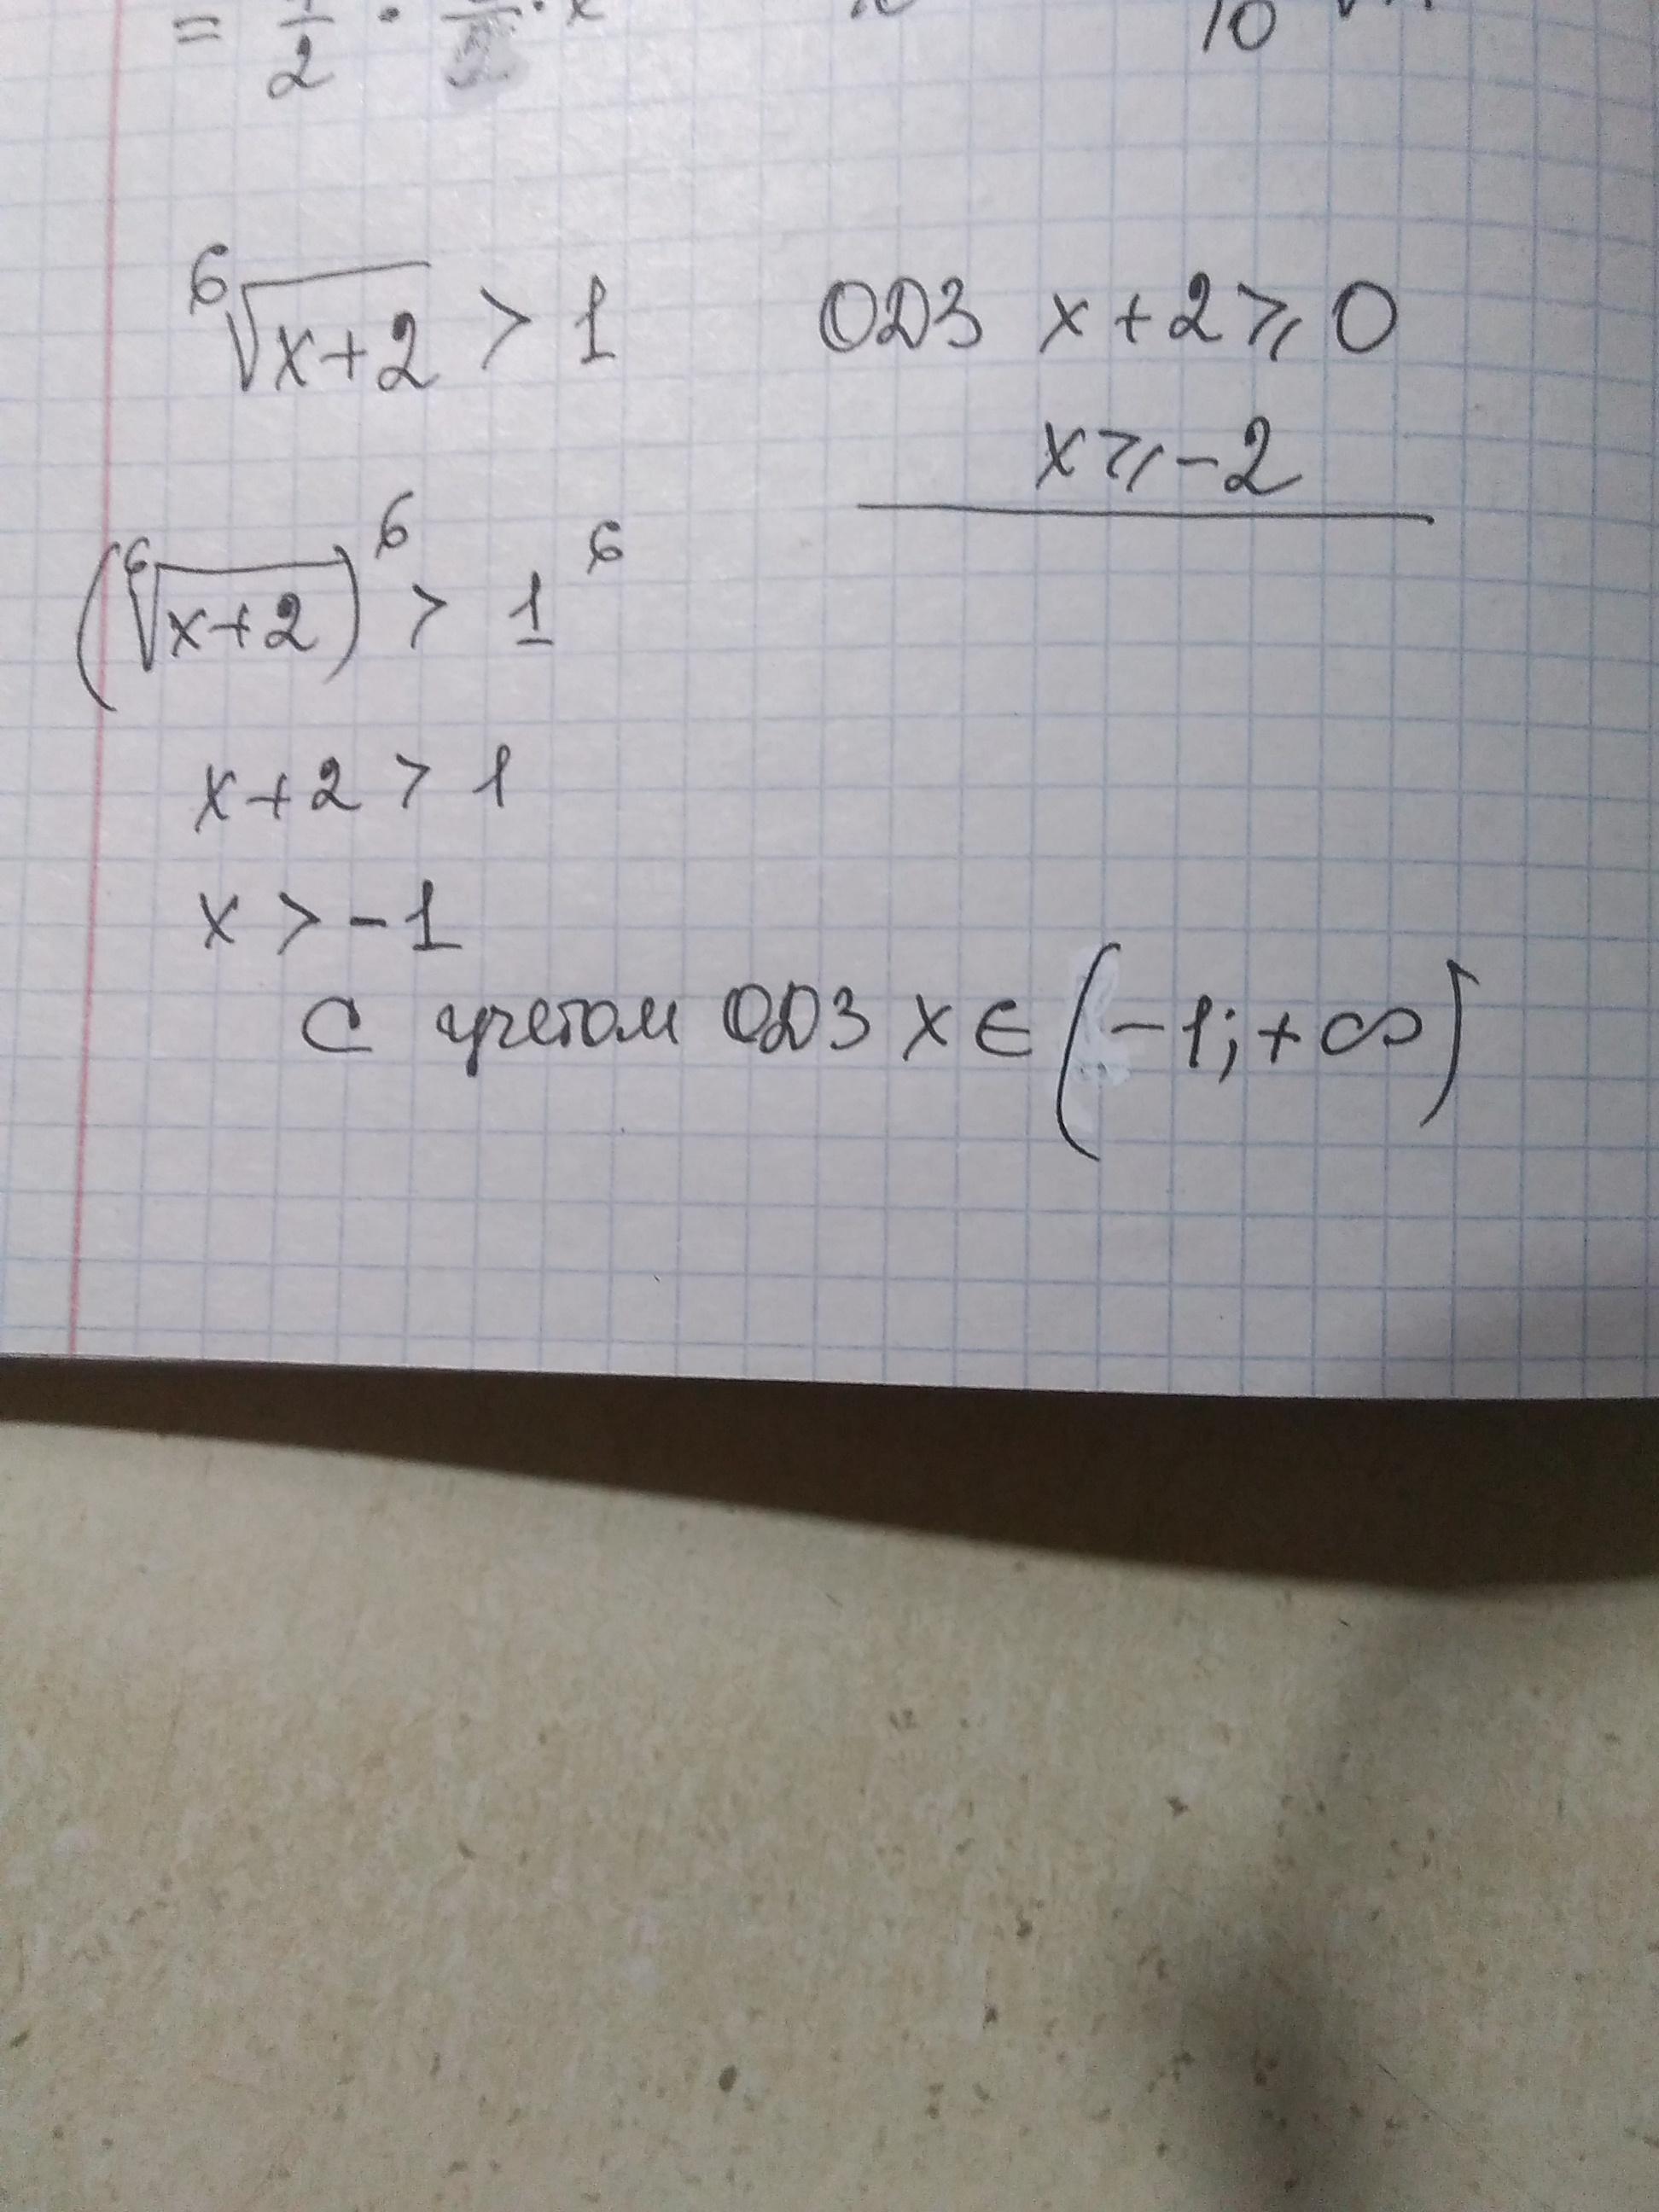 = 1/2 · · x
10
⁶√(x+2) > 1 ОДЗ x+2 ⩾ 0
x ⩾ -2
(⁶√(x+2))⁶ > 1⁶
x+2 > 1
x > -1
С учетом ОДЗ x ∈ (-1; +∞)